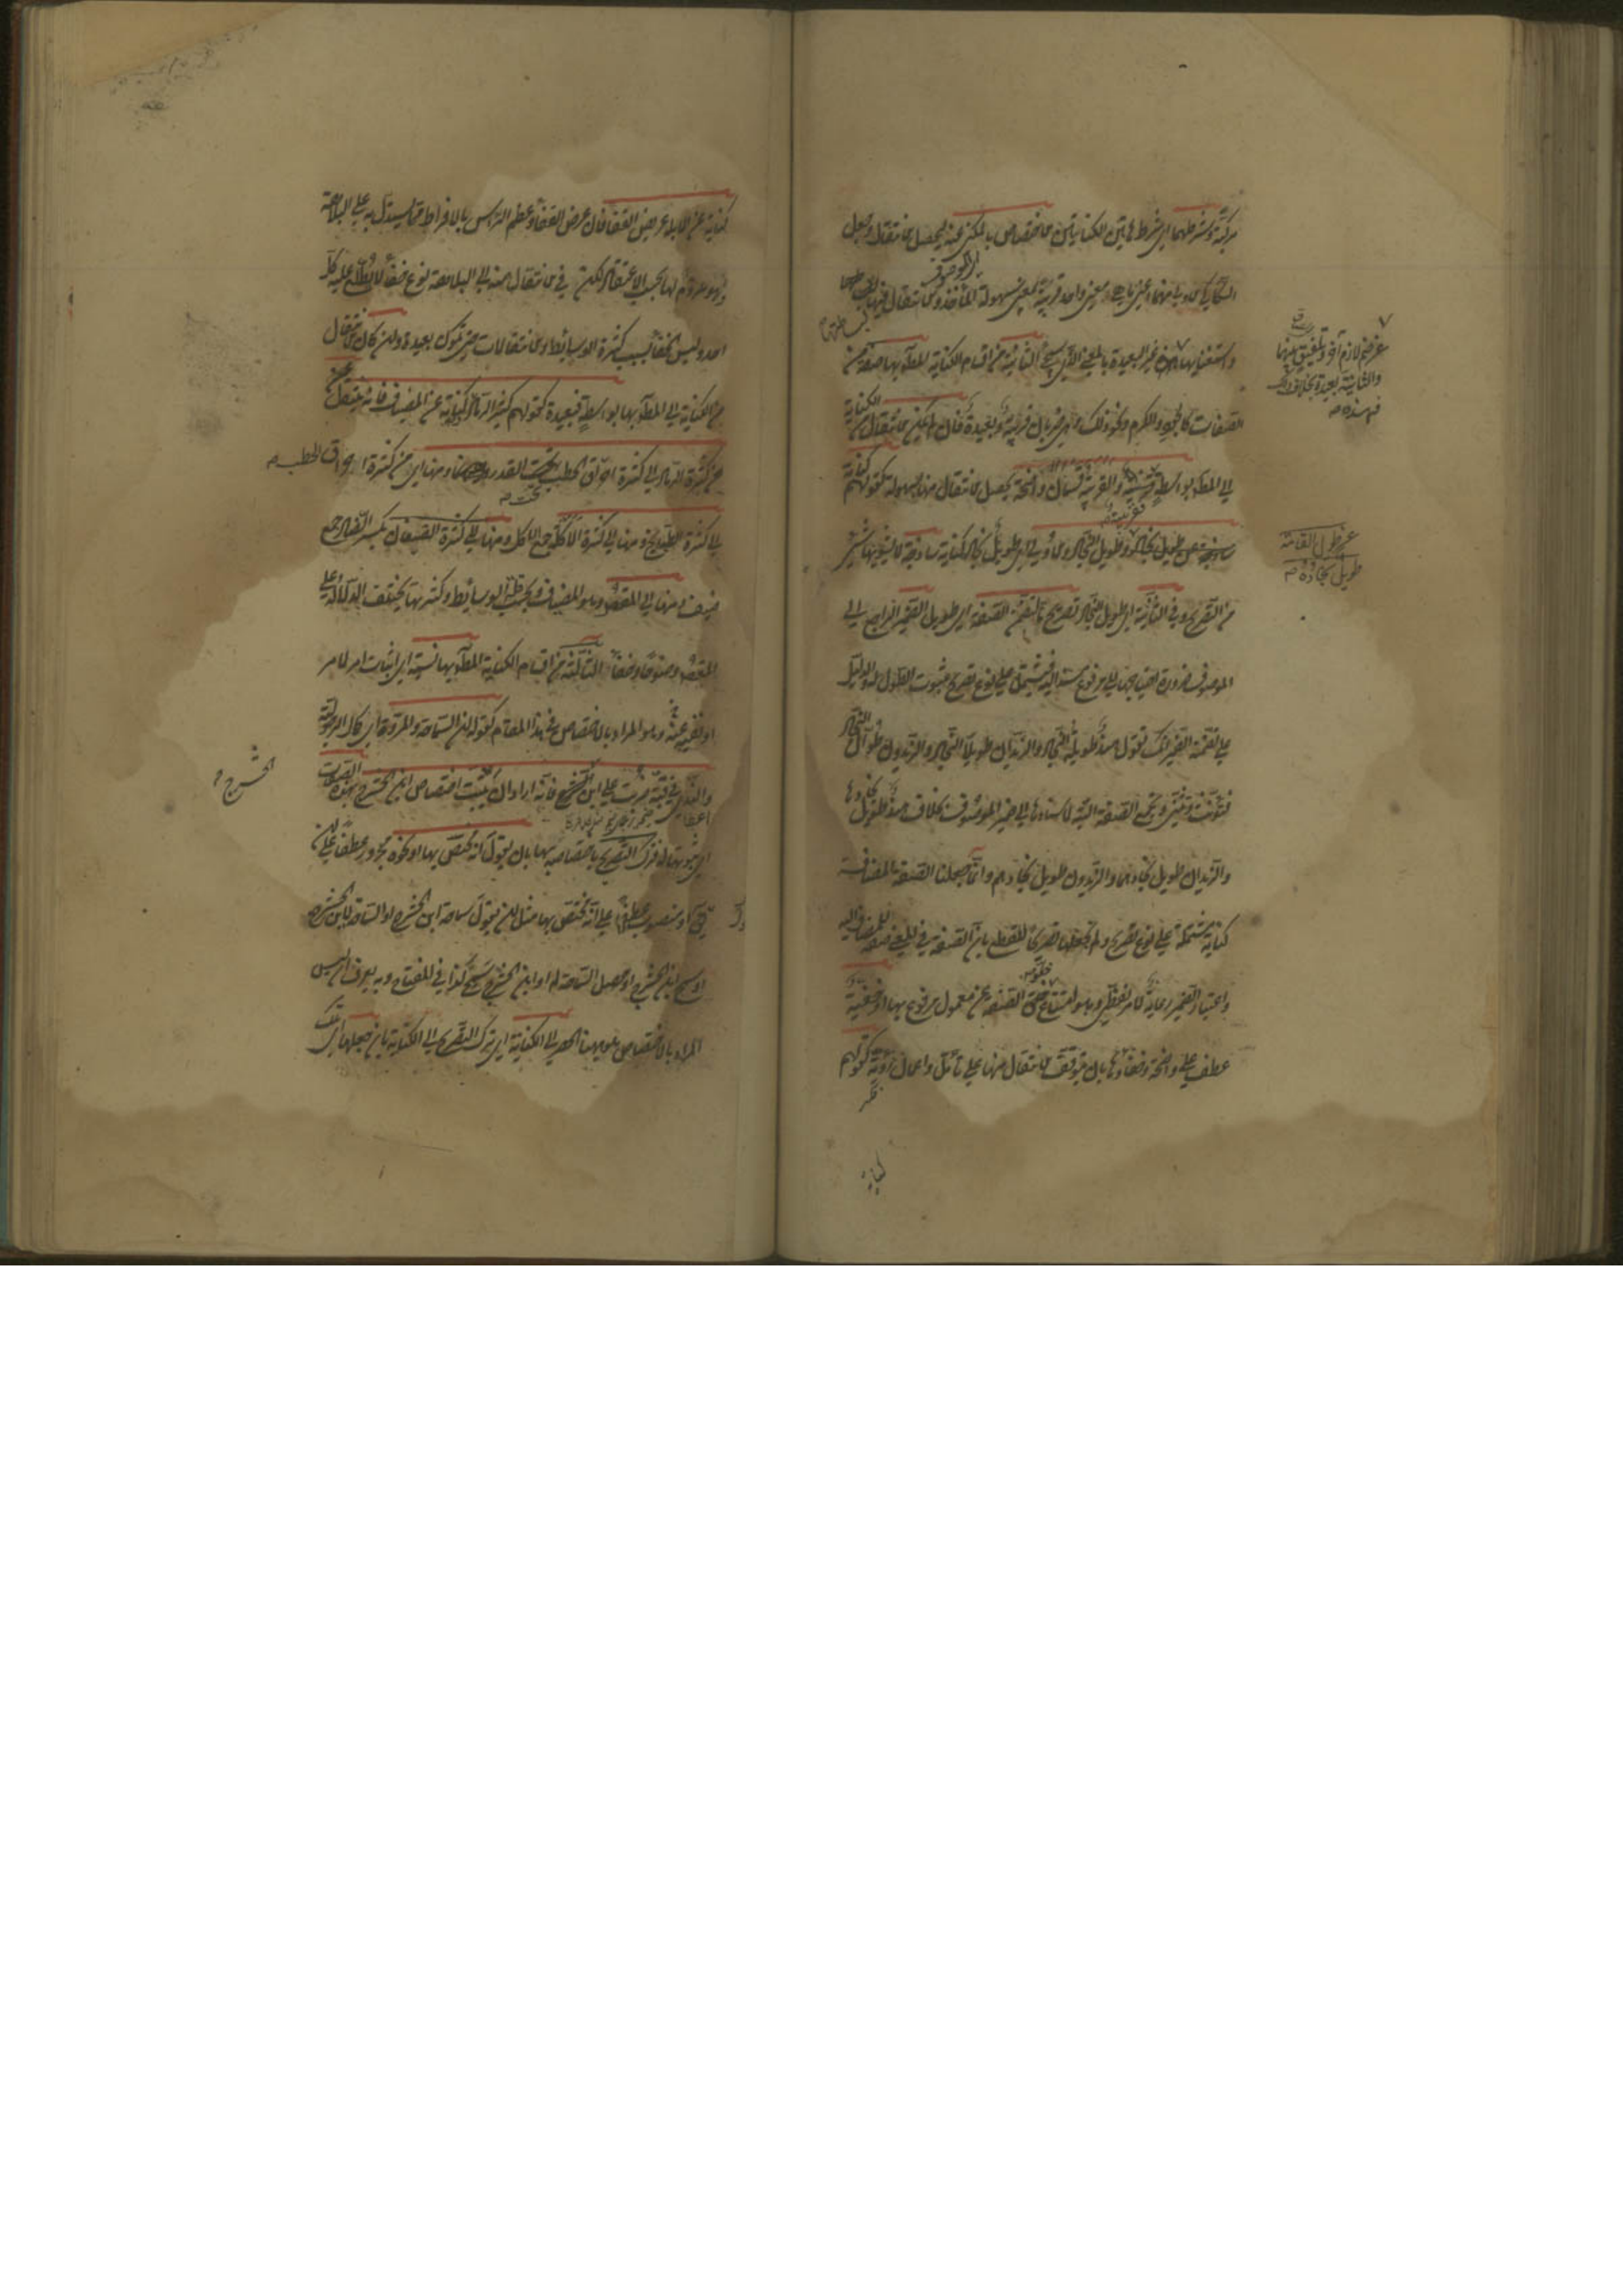 مركبة وشرطهما اي شرط هاتين الكنايتين الاختصاص بالمكني عنه ليحصل الانتقال وجعل
السكاكي الاولى منهما اعني ما هي معنى واحد قريبة بمعنى سهولة المأخذ والانتقال فيها لبساطتها
واستغنائها عن ضم لازم آخر وتلفيق بينهما والثانية بعيدة بخلاف ذلك وهذه غير البعيدة بالمعنى الذي سيجئ الثانية من اقسام الكناية المطلوب بها صفة من
الصفات كالجود والكرم ونحو ذلك وهي ضربان قريبة وبعيدة فان لم يكن الانتقال من الكناية
الى المطلوب بواسطة فقريبة والقريبة قسمان واضحة يحصل الانتقال منها بسهولة كقولهم كناية
عن طول القامة طويل نجاده وطويل النجاد والاولى اي طويل نجاده كناية ساذجة لا يشوبها شئ
من التصريح وفي الثانية اي طويل النجاد تصريح ما لتضمن الصفة اي طويل الضمير الراجع الى
الموصوف ضرورة احتياجها الى مرفوع مسند اليه فيشتمل على نوع تصريح بثبوت الطول له والدليل
على تضمنه الضمير انك تقول هند طويلة النجاد والزيدان طويلا النجاد والزيدون طوال النجاد
فتؤنث وتثنى وتجمع الصفة البتة لاسنادها الى ضمير الموصوف بخلاف هند طويل نجادها
والزيدان طويل نجادهما والزيدون طويل نجادهم وانما جعلنا الصفة المضافة
كناية مشتملة على نوع تصريح ولم نجعلها تصريحا للقطع بان الصفة في المعنى صفة للمضاف اليه
واعتبار الضمير رعاية لامر لفظي وهو امتناع خلو الصفة عن معمول مرفوع بها او خفية
عطف على واضحة وخفاؤها بان يتوقف الانتقال منها على تأمل واعمال روية كقولهم
كناية
كناية عن الابله عريض القفا فان عرض القفا وعظم الرأس بالافراط مما يستدل به على البلاهة
وهو ملزوم لها بحسب الاعتقاد لكن في الانتقال منه الى البلاهة نوع خفأ لا يطلع عليه كل
احد وليس الخفأ بسبب كثرة الوسائط والانتقالات حتى تكون بعيدة وان كان الانتقال
من الكناية الى المطلوب بها بواسطة فبعيدة كقولهم كثير الرماد كناية عن المضياف فانه ينتقل
من كثرة الرماد الى كثرة احراق الحطب تحت القدر ومنها اي من كثرة احراق الحطب
الى كثرة الطبايخ ومنها الى كثرة الاكلة جمع آكل ومنها الى كثرة الضيفان بكسر الضاد جمع
ضيف ومنها الى المقصود وهو المضياف وبحسب قلة الوسائط وكثرتها تختلف الدلالة على
المقصود وضوحا وخفاء الثالثة من اقسام الكناية المطلوب بها نسبة اي اثبات امر لامر
او نفيه عنه وهو المراد بالاختصاص في هذا المقام كقوله ان السماحة والمروة اي كمال الرجولية
والندى في قبة ضربت على ابن الحشرج فانه اراد ان يثبت اختصاص ابن الحشرج بهذه الصفات
اي ثبوتها له فترك التصريح باختصاصه بها بان يقول انه مختص بها او نحوه مجرور عطفا على ان
يقول او منصوب عطفا على انه مختص بها مثل ان يقول سماحة ابن الحشرج او السماحة لابن الحشرج
او سمح ابن الحشرج او حصل السماحة له او ابن الحشرج سمح كذا في المفتاح وبه يعرف ان ليس
المراد بالاختصاص ههنا الحصر الى الكناية اي ترك التصريح الى الكناية بان جعلها اي تلك